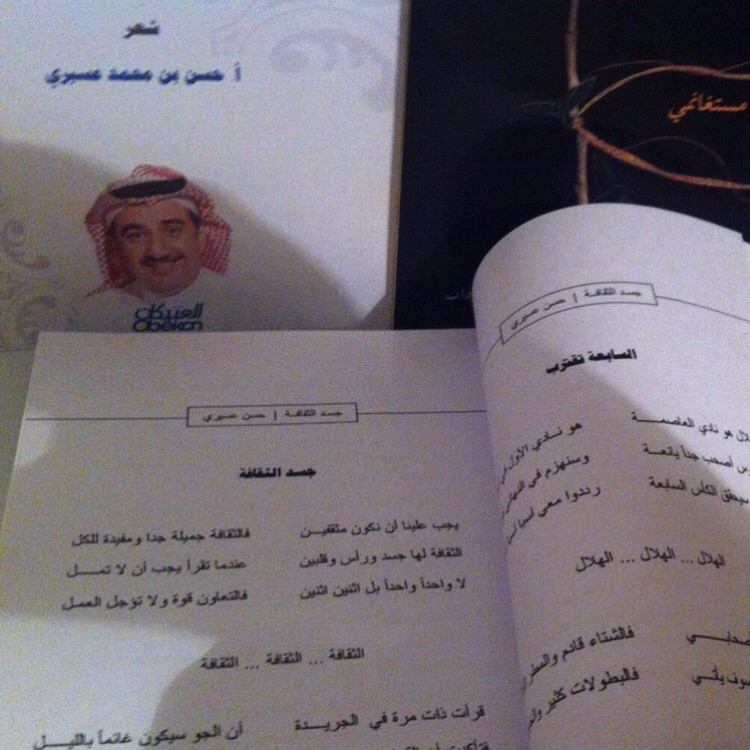 شعر
أ. حسن بن محمد عسيري
العبيكان
Obekan
مستغانمي
جسد الثقافة | حسن عسيري
جسد الثقافة
يجب علينا أن نكون مثقفيـن فالثقافة جميلة جدا ومفيدة للكل
الثقافة لها جسد ورأس وقلبين عندما تقرأ يجب أن لا تمـــل
لا واحداً واحداً بل اثنين اثنين فالتعاون قوة ولا تؤجل العمل
الثقافة ... الثقافة ... الثقافة
قرأت ذات مرة في الجريـدة أن الجو سيكون غائماً بالليـل
جسد الثقافة | حسن عسيري
السابعة تقترب
هو نادي العاصمـة هو نـادي الأول
أصحب جداً يانعـة وسنهزم في
الكأس السابعة رددوا معي آسيا
الهلال ... الهلال ... الهلال
فالشتاء قادم والمطر
يأتـي فالبطولات كثير